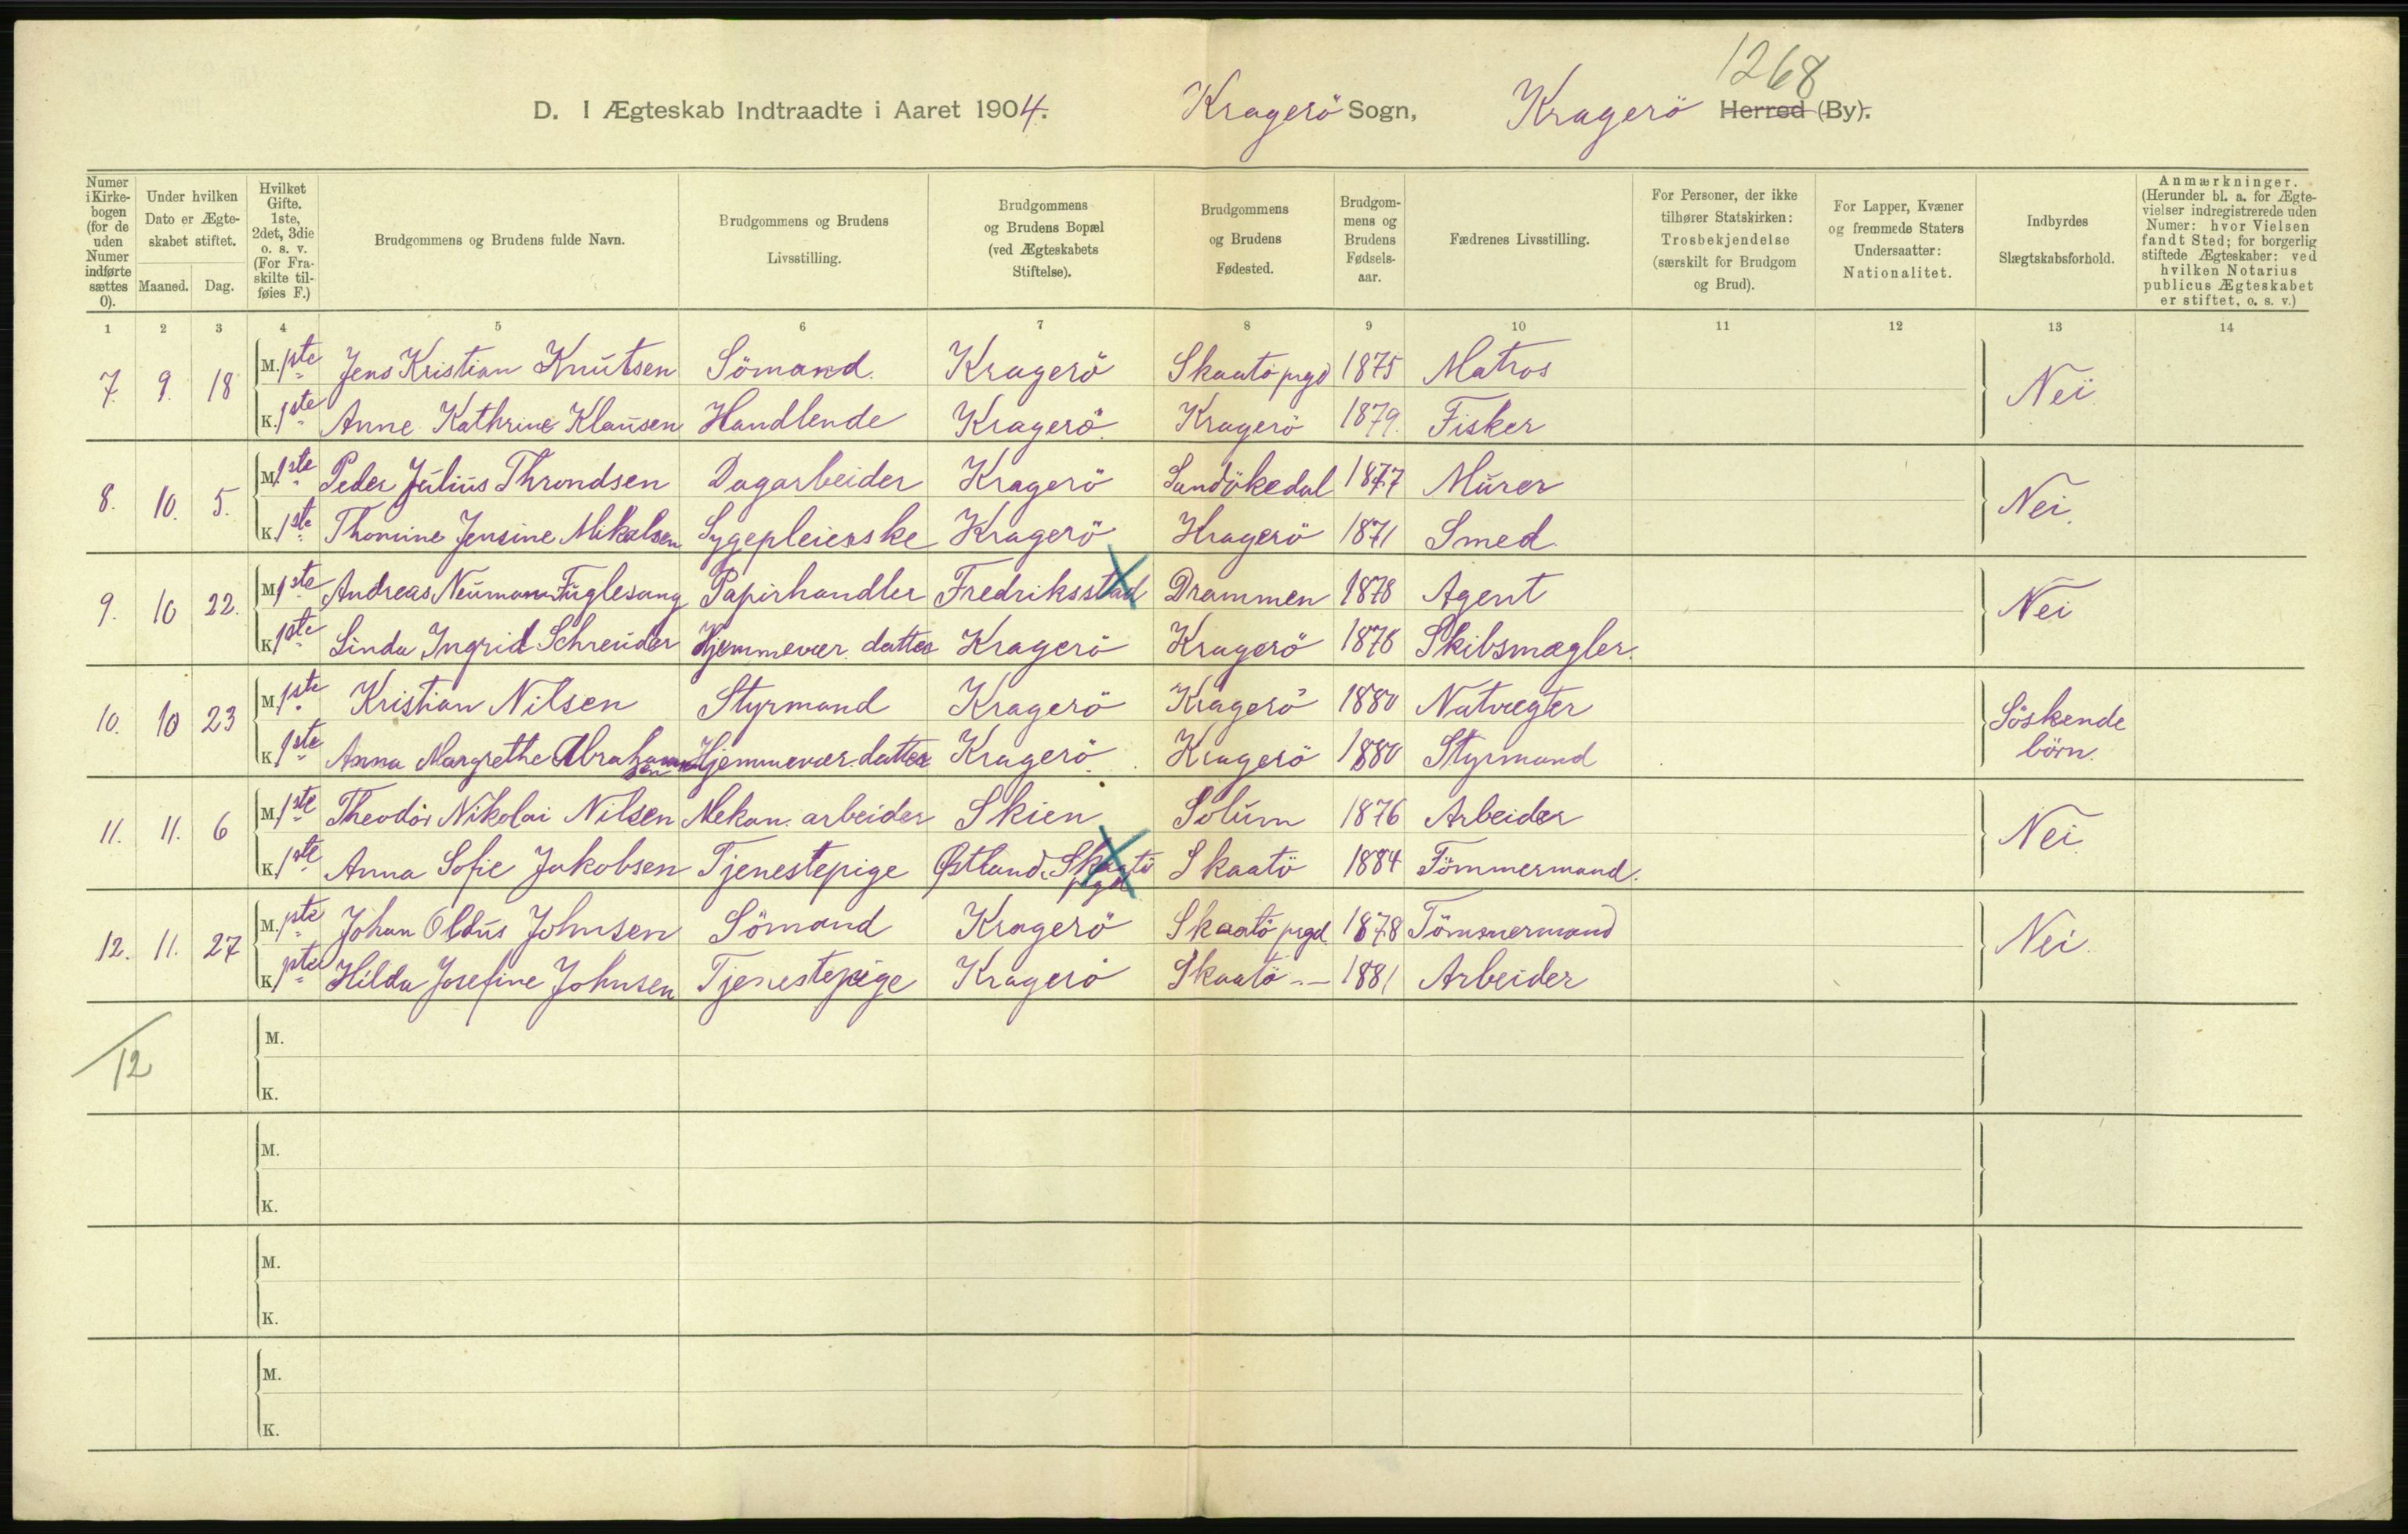 1268
D. I Ægteskab Indtraadte i Aaret 1904. Kragerö Sogn, Kragerö Herred (By).
Numer i Kirke-bogen (for de uden Numer indførte sættes 0).
Under hvilken Dato er Ægte-skabet stiftet.
Maaned. Dag.
Hvilket Gifte. 1ste, 2det, 3die o. s. v. (For Fra-skilte til-føies F.)
Brudgommens og Brudens fulde Navn.
Brudgommens og Brudens Livsstilling.
Brudgommens og Brudens Bopæl (ved Ægteskabets Stiftelse).
Brudgommens og Brudens Fødested.
Brudgom-mens og Brudens Fødsels-aar.
Fædrenes Livsstilling.
For Personer, der ikke tilhører Statskirken: Trosbekjendelse (særskilt for Brudgom og Brud).
For Lapper, Kvæner og fremmede Staters Undersaatter: Nationalitet.
Indbyrdes Slægtskabsforhold.
Anmærkninger. (Herunder bl. a. for Ægte-vielser indregistrerede uden Numer: hvor Vielsen fandt Sted; for borgerlig stiftede Ægteskaber: ved hvilken Notarius publicus Ægteskabet er stiftet, o. s. v.)
1 2 3 4 5 6 7 8 9 10 11 12 13 14
7. 9. 18 M. 1ste Jens Kristian Knutsen Sömand. Kragerö Skaatö prgd 1875 Matros Nei
K. 1ste Anne Kathrine Klausen Handlende Kragerö. Kragerö 1879. Fisker
8. 10. 5. M. 1ste Peder Julius Throndsen Dagarbeider Kragerö Sandökedal 1877 Murer Nei.
K. 1ste Thomine Jensine Mikalsen Sygepleierske Kragerö Kragerö 1871 Smed.
9. 10 22. M. 1ste Andreas Neumann Fuglesang Papirhandler Fredriksstad Drammen 1878 Agent Nei
K. 1ste Linda Ingrid Schreuder Hjemmevær. datter Kragerö Kragerö 1878 Skibsmægler.
10. 10 23 M. 1ste Kristian Nilsen Styrmand Kragerö Kragerö 1880 Natvægter Söskende börn.
K. 1ste Anna Margrethe Abrahamsen Hjemmevær. datter Kragerö. Kragerö 1880 Styrmand
11. 11. 6 M. 1ste Theodor Nikolai Nilsen Mekan. arbeider Skien Solum 1876 Arbeider Nei
K. 1ste Anna Sofie Jakobsen Tjenestepige Østland. Skaatö prgd Skaatö 1884 Tömmermand.
12. 11. 27 M. 1ste Johan Oldus Johnsen Sömand Kragerö Skaatö prgd 1878 Tömmermand Nei.
K. 1ste Hilda Josefine Johnsen Tjenestepige Kragerö Skaatö -"- 1881 Arbeider
12 M.
K.
M.
K.
M.
K.
M.
K.